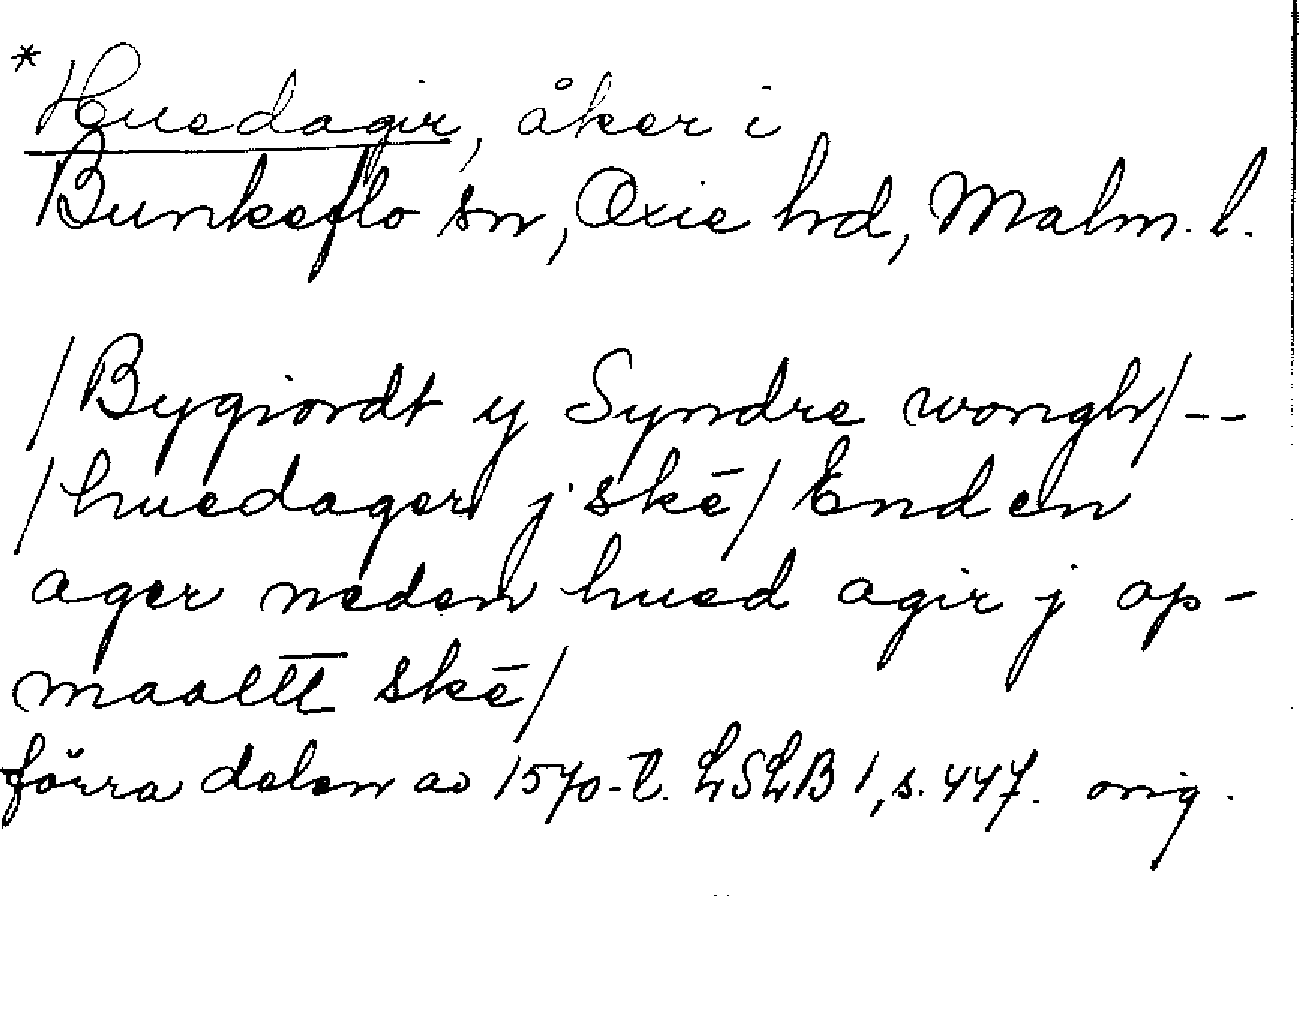 * Huedagir, åker i
Bunkeflo sn, Oxie hd, Malm. l.
/Bygiordt y Syndre wongh/--
/huedager j skē/ Enden
ager neden hued agir j op-
maaltt skē/
förra delen av 1570-t. LSLB 1, s. 447. orig.